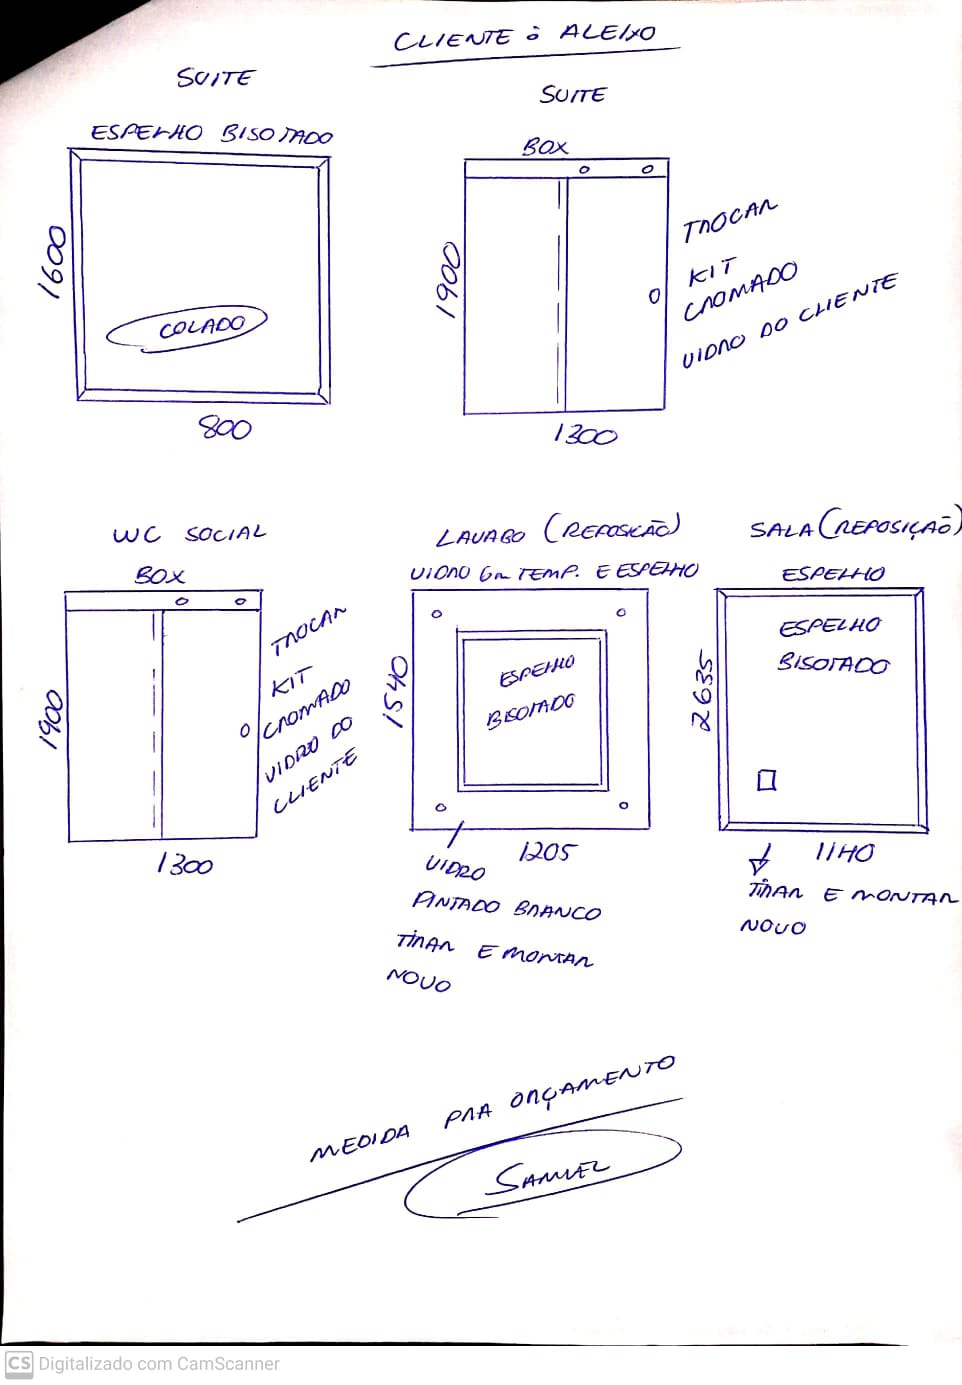 CLIENTE: ALEIXO
SUITE
ESPELHO BISOTADO
1600
COLADO
800
SUITE
BOX
1900
TROCAR
KIT
CROMADO
VIDRO DO CLIENTE
1300
WC SOCIAL
BOX
1900
TROCAR
KIT
CROMADO
VIDRO DO
CLIENTE
1300
LAVABO (REPOSICÃO)
VIDRO 6m TEMP. E ESPELHO
1540
ESPELHO
BISOTADO
1205
VIDRO
PINTADO BRANCO
TIRAR E MONTAR
NOVO
SALA (REPOSIÇÃO)
ESPELHO
2635
ESPELHO
BISOTADO
1140
TIRAR E MONTAR
NOVO
MEDIDA PRA ORÇAMENTO
SAMUEL
CS Digitalizado com CamScanner